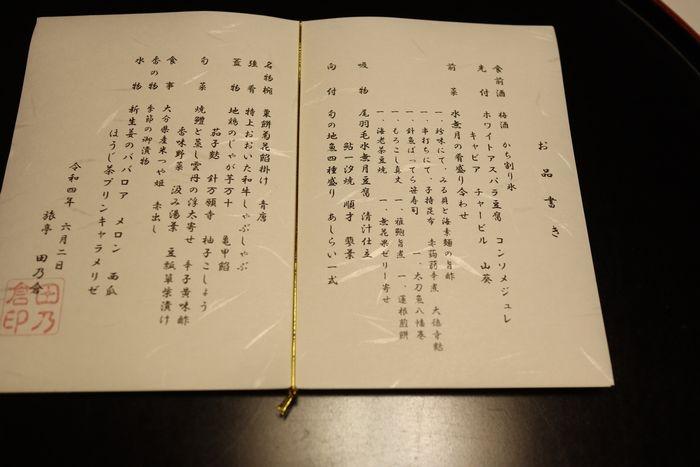 お品書き
食前酒 梅酒 かち割り氷
先付 ホワイトアスパラ豆腐 コンソメジュレ
キャビア チャービル 山葵
前菜 水無月の肴盛り合わせ
一、珍味にて、みる貝と海素麺の旨酢
一、串打ちにて、子持昆布 赤蒟蒻辛煮 大徳寺麩
一、針魚ばってら笹寿司 一、太刀魚八幡巻
一、もろこし真丈 一、稚鮑旨煮 一、蓮根煎餅
一、海老茶豆焼 一、無花果ゼリー寄せ
吸物 尾羽毛水無月豆腐 清汁仕立
鮎一汐焼 順才
向付 旬の地魚四種盛り あしらい一式
名物椀 粟餅菊花餡掛け 青唐
強肴 特上おおいた和牛しゃぶしゃぶ
蓋物 地鶏のじゃが芋万十 亀甲餡
茄子麩 針万願寺 柚子こしょう
旬菜 焼鱧と蒸し雲丹の浮太寄せ 辛子黄味酢
香味野菜 汲み湯葉 豆瓢草柴漬け
食事 大分県産米つや姫 赤出し
香の物 季節の御漬物
水物 新生姜のババロア メロン 西瓜
ほうじ茶プリンキャラメリゼ
令和四年 六月二日
旅亭 田乃倉
田乃倉印